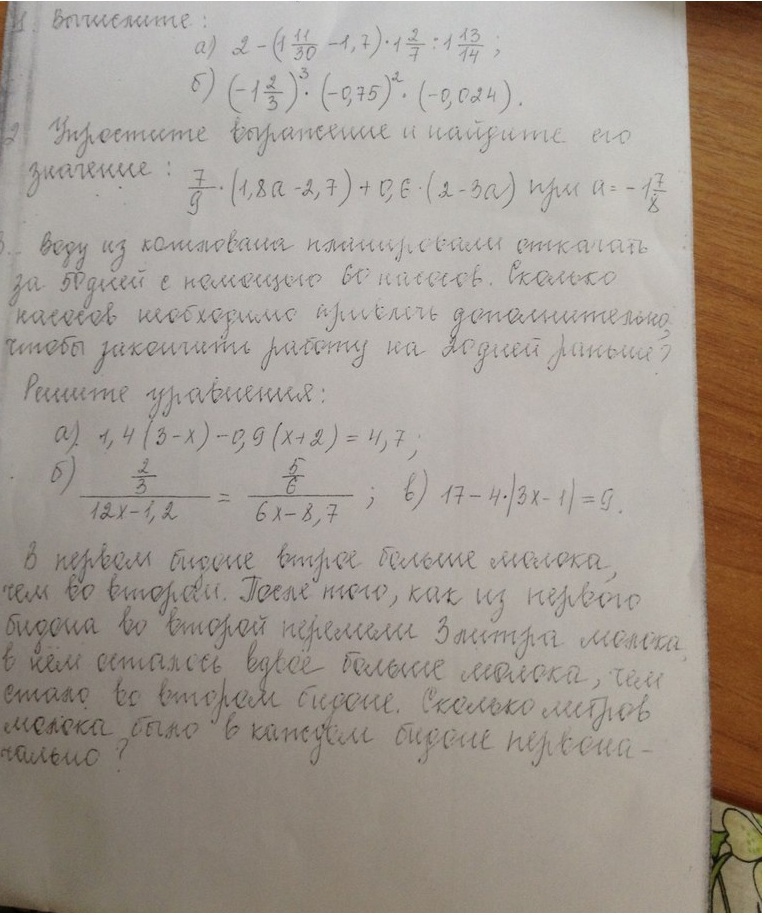 1. Вычислите:
а) 2 - (1 11/30 - 1,7) · 1 2/7 : 1 13/14;
б) (-1 2/3)³ · (-0,75)² · (-0,024).
2 Упростите выражение и найдите его
значение: 7/9 · (1,8а - 2,7) + 0,6 · (2 - 3а) при а = -1 7/8
3. Воду из котлована планировали откачать
за 50 дней с помощью 60 насосов. Сколько
насосов необходимо привлечь дополнительно,
чтобы закончить работу на 20 дней раньше?
Решите уравнения:
а) 1,4(3-x) - 0,9(x+2) = 4,7;
б) (2/3)/(12x-1,2) = (5/6)/(6x-8,7); в) 17 - 4·|3x-1| = 9.
В первом бидоне втрое больше молока,
чем во втором. После того, как из первого
бидона во второй перелили 3 литра молока,
в нём осталось вдвое больше молока, чем
стало во втором бидоне. Сколько литров
молока было в каждом бидоне первона-
чально?